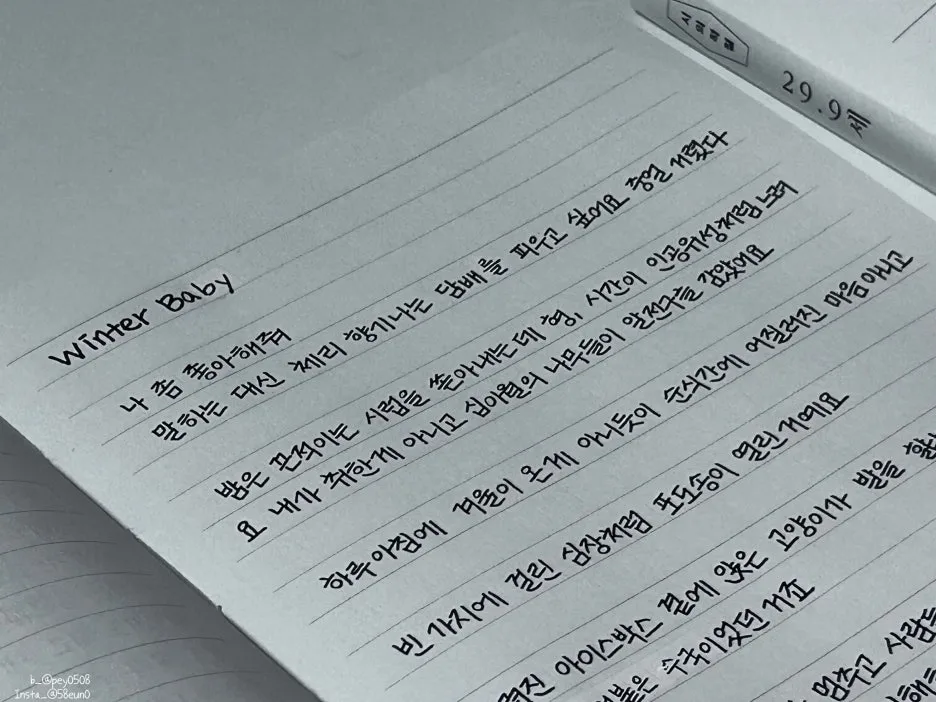 시의적절
29.9세
Winter Baby
나 좀 좋아해줘
말하는 대신 체리 향기나는 담배를 피우고 싶어요 종일 거렸다
밤은 끈적이는 시럽을 쏟아내는데 형, 시간이 인공위성처럼 느려
요 내가 취한게 아니고 십이월의 나무들이 알전구를 감았어요
하루아침에 겨울이 온게 아니듯이 순식간에 어질러진 마음 아니고
빈 가지에 걸린 심장처럼 포도송이 열린거예요
아이스박스 곁에 앉은 고양이가 발을
수국이었던 거죠
멈추고 사람들
b_@pey0508
Insta_@58eun0